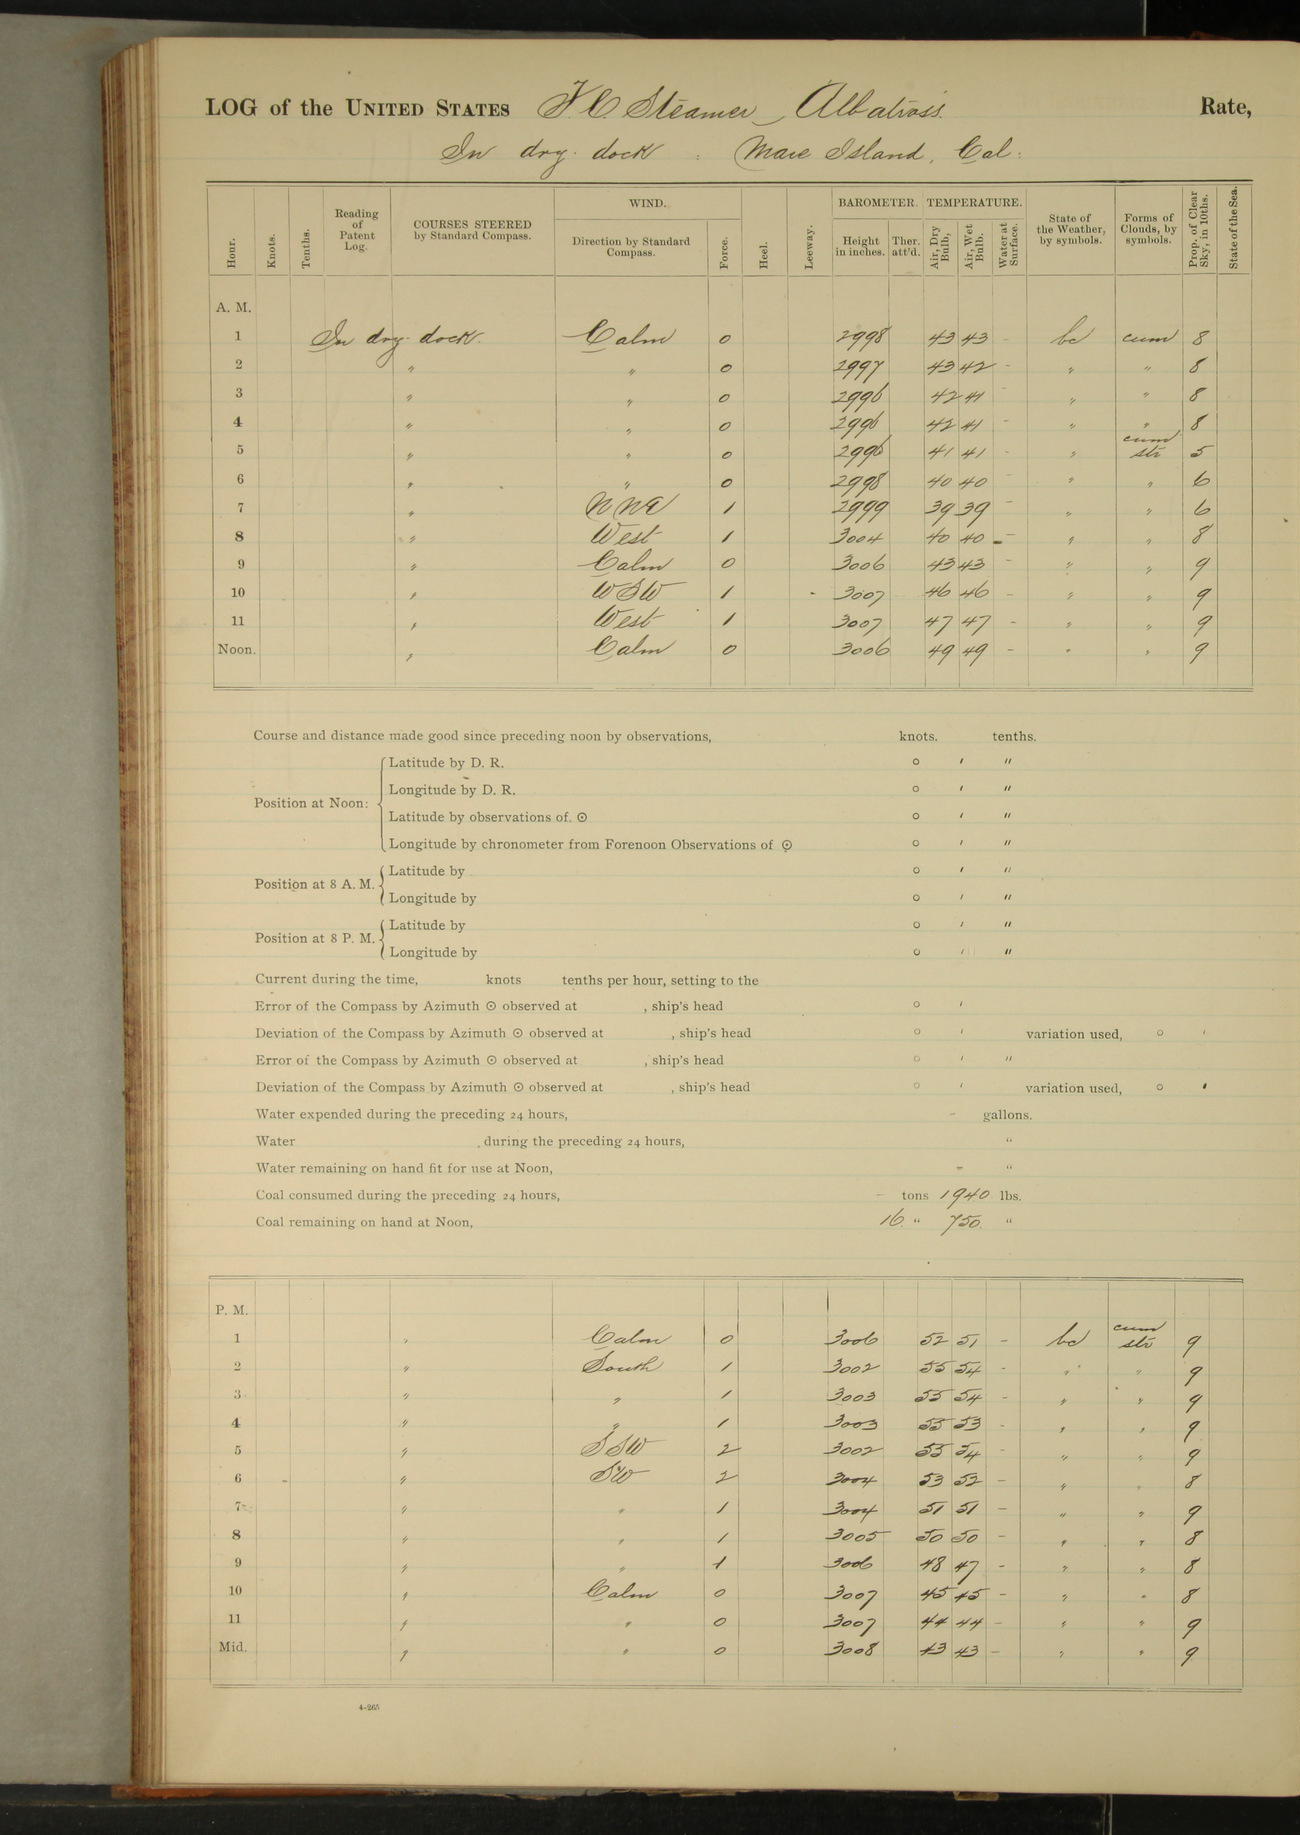 LOG of the UNITED STATES F. C. Steamer Albatross. Rate,
In dry dock : Mare Island, Cal:
Hour. Knots. Tenths. Reading of Patent Log. COURSES STEERED by Standard Compass. WIND. Direction by Standard Compass. Force. Heel. Leeway. BAROMETER. Height in inches. Ther. att'd. TEMPERATURE. Air, Dry Bulb. Air, Wet Bulb. Water at Surface. State of the Weather, by symbols. Forms of Clouds, by symbols. Prop. of Clear Sky, in 10ths. State of the Sea.
A. M.
1 In dry dock. Calm 0 2998 43 43 - bc cum 8
2 " " 0 2997 43 42 - " " 8
3 " " 0 2996 42 41 - " " 8
4 " " 0 2996 42 41 - " " 8
5 " " 0 2996 41 41 - " cum str 5
6 " " 0 2998 40 40 - " " 6
7 " NNE 1 2999 39 39 - " " 6
8 " West 1 3004 40 40 - " " 8
9 " Calm 0 3006 43 43 - " " 9
10 " WSW 1 3007 46 46 - " " 9
11 " West 1 3007 47 47 - " " 9
Noon. " Calm 0 3006 49 49 - " " 9
Course and distance made good since preceding noon by observations, knots. tenths.
Position at Noon: Latitude by D. R. ° ′ ″
Longitude by D. R. ° ′ ″
Latitude by observations of. ☉ ° ′ ″
Longitude by chronometer from Forenoon Observations of ☉ ° ′ ″
Position at 8 A. M. Latitude by ° ′ ″
Longitude by ° ′ ″
Position at 8 P. M. Latitude by ° ′ ″
Longitude by ° ′ ″
Current during the time, knots tenths per hour, setting to the
Error of the Compass by Azimuth ☉ observed at , ship's head ° ′
Deviation of the Compass by Azimuth ☉ observed at , ship's head ° ′ variation used, ° ′
Error of the Compass by Azimuth ☉ observed at , ship's head ° ′ ″
Deviation of the Compass by Azimuth ☉ observed at , ship's head ° ′ variation used, ° ′
Water expended during the preceding 24 hours, - gallons.
Water , during the preceding 24 hours, "
Water remaining on hand fit for use at Noon, - "
Coal consumed during the preceding 24 hours, - tons 1940 lbs.
Coal remaining on hand at Noon, 16 " 750 "
P. M.
1 " Calm 0 3006 52 51 - bc cum str 9
2 " South 1 3002 55 54 - " " 9
3 " " 1 3003 55 54 - " " 9
4 " " 1 3003 55 53 - " " 9
5 " SSW 2 3002 55 54 - " " 9
6 " SW 2 3004 53 52 - " " 8
7 " " 1 3004 51 51 - " " 9
8 " " 1 3005 50 50 - " " 8
9 " " 1 3006 48 47 - " " 8
10 " Calm 0 3007 45 45 - " " 8
11 " " 0 3007 44 44 - " " 9
Mid. " " 0 3008 43 43 - " " 9
4-265